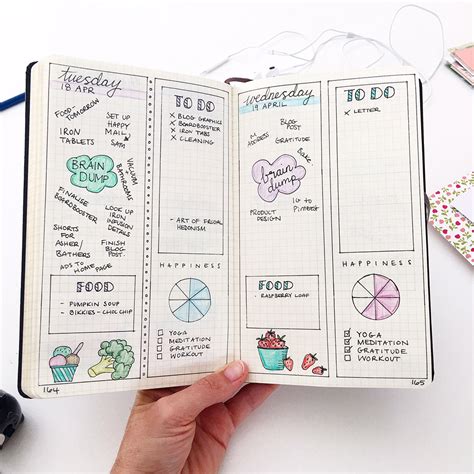 tuesday
18 APR
FOOD
TOMORROW
SET UP
HAPPY
MAIL
SAM
IRON
TABLETS
VACUUM
+
BATHROOMS
BRAIN
DUMP
FINALISE
BOARDBOOSTER
LOOK UP
IRON
INFUSION
DETAILS
SHORTS
FOR
ASHER/
BATHERS
FINISH
BLOG
POST
ADS TO HOME PAGE
FOOD
- PUMPKIN SOUP
- BIKKIES - CHOC CHIP
164
TO DO
X BLOG GRAPHICS
X BOARDBOOSTER
X IRON TABS
X CLEANING
- ART OF FRUGAL
HEDONISM
HAPPINESS
YOGA
MEDITATION
GRATITUDE
WORKOUT
wednesday
19 APRIL
ADDRESS
BLOG
POST
GRATITUDE
Bake
brain
dump
PRODUCT
DESIGN
IG to
Pinterest
FOOD
- RASPBERRY LOAF
TO DO
X LETTER
HAPPINESS
YOGA
MEDITATION
GRATITUDE
WORKOUT
165